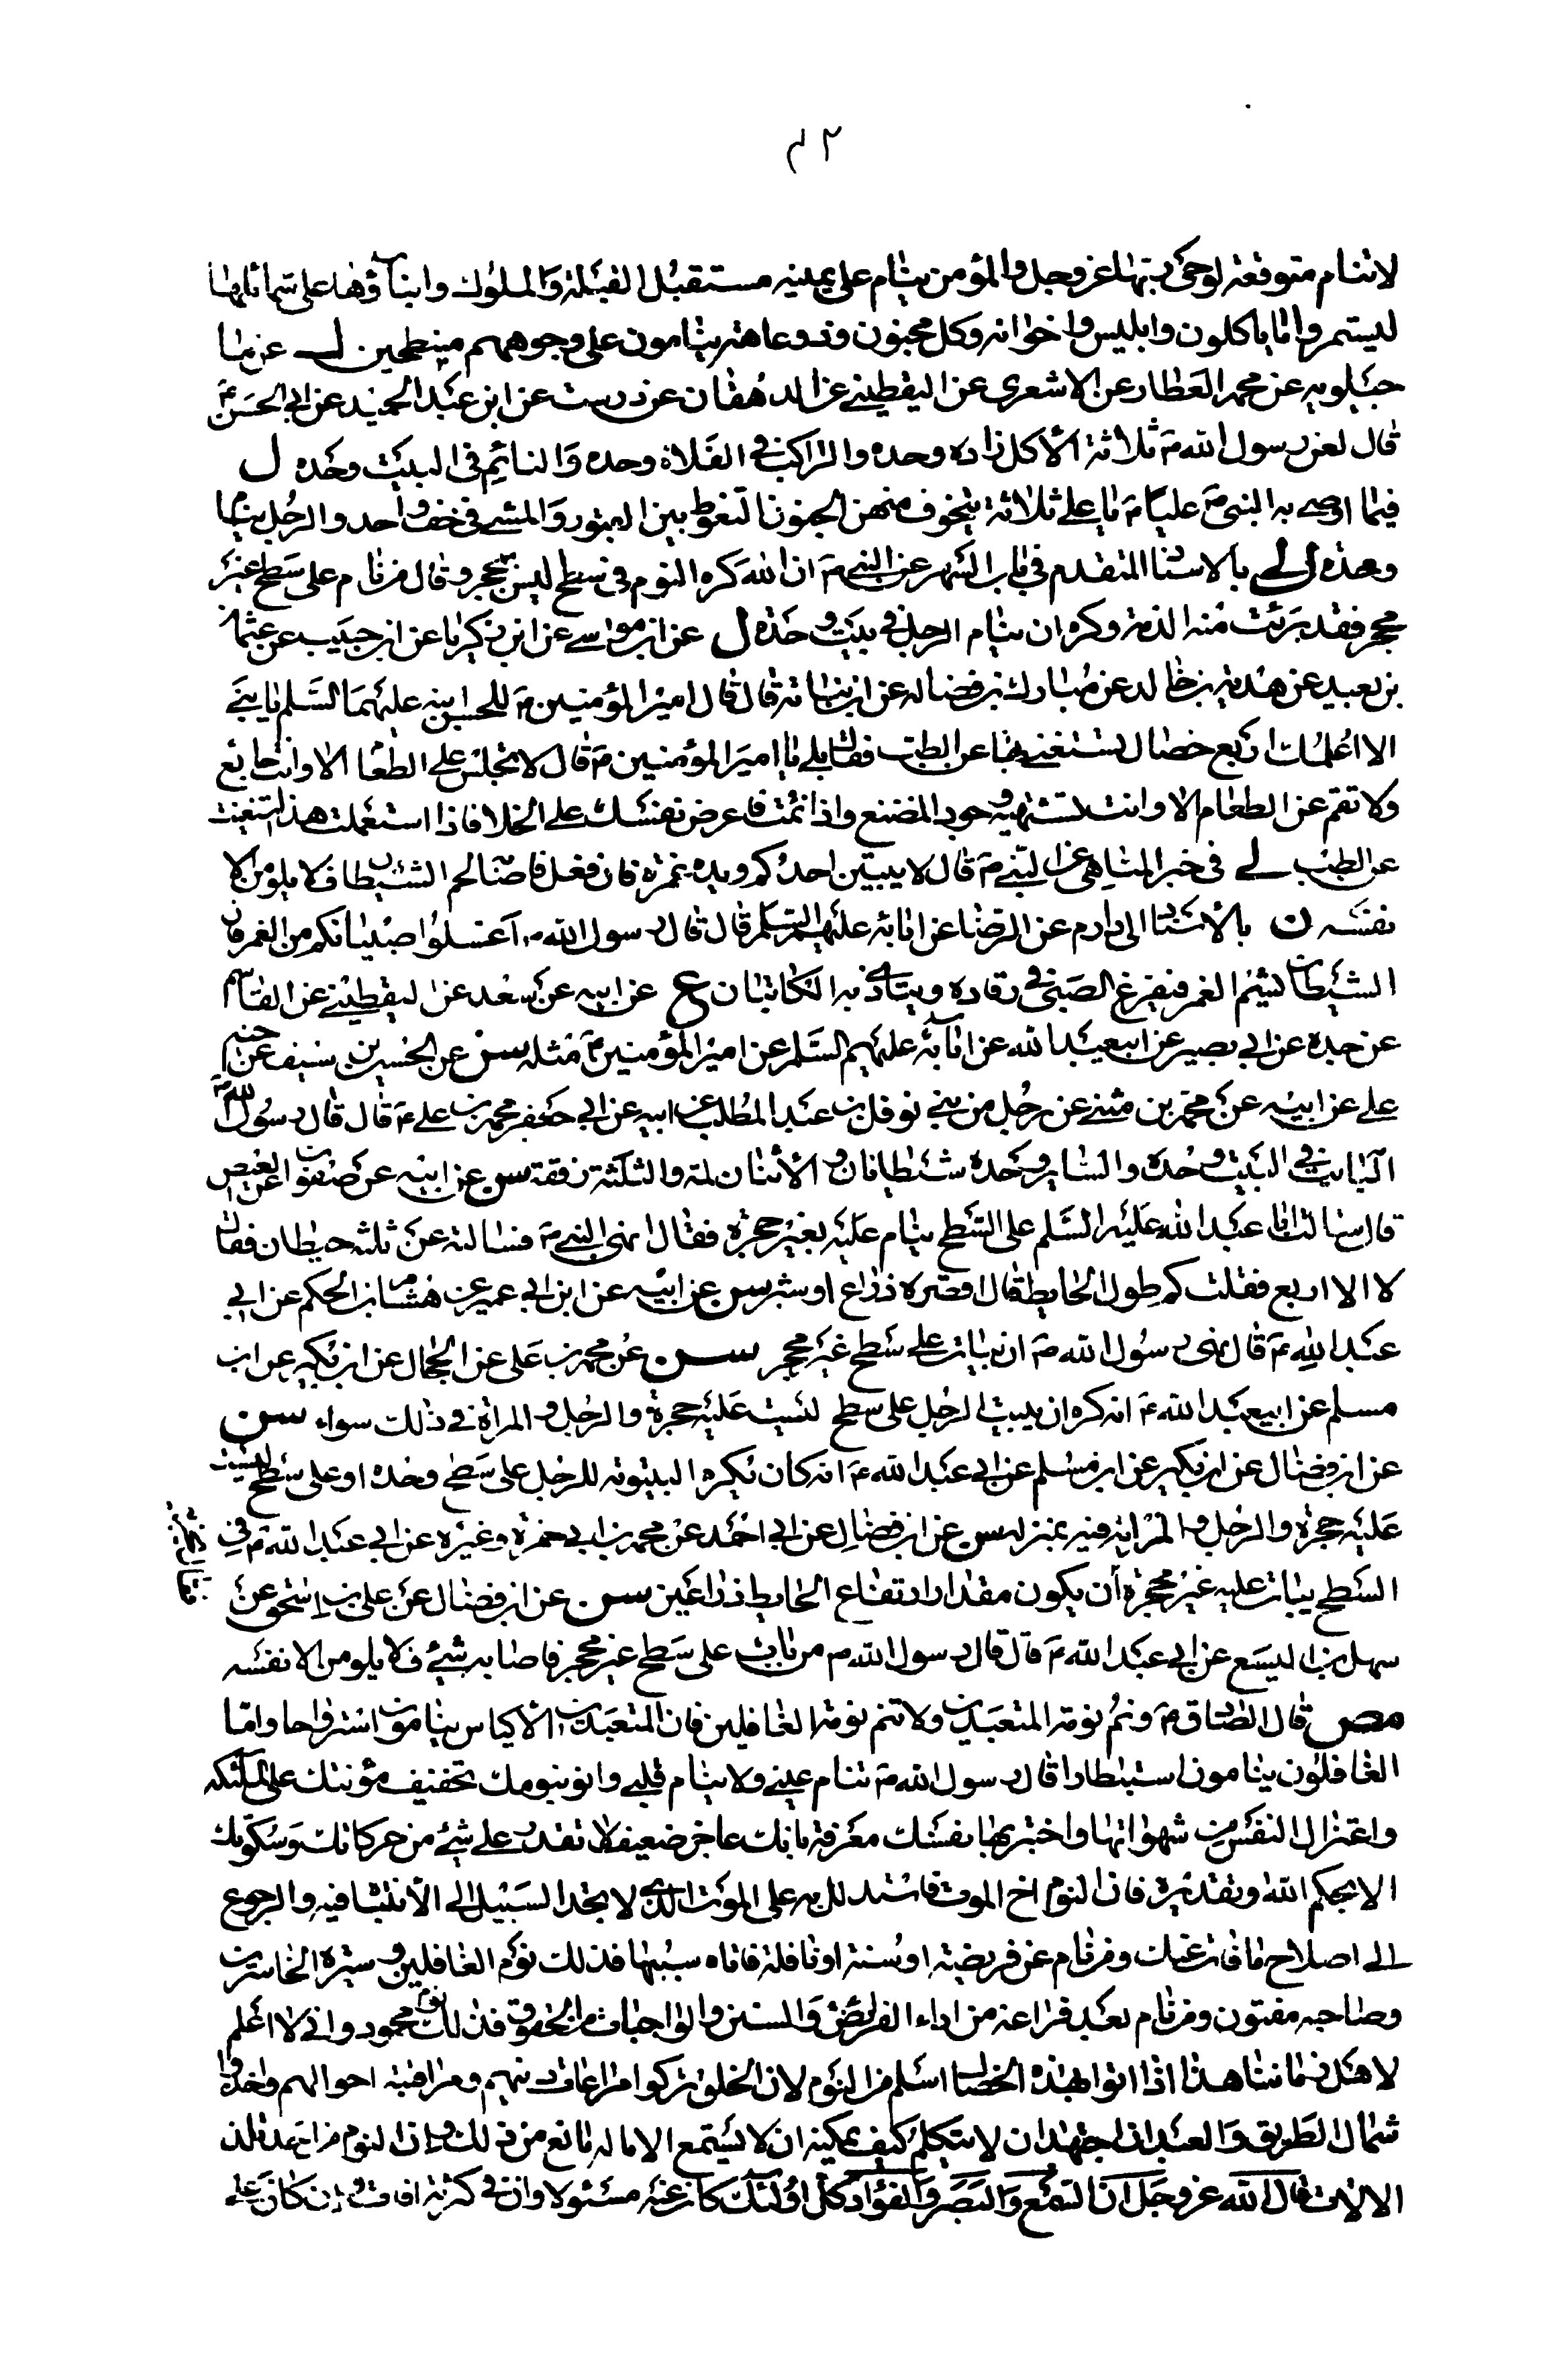 ٤٢
لا تنام متوقعة لوحى ربها عز وجل والمؤمن ينام على يمينه مستقبل القبلة والملوك وابناؤها على شمائلها
ليستمرؤا ما ياكلون وابليس واخوانه وكل مجنون وذو عاهة ينامون على وجوههم منبطحين ل عن ما
جيلويه عن محمد العطار عن الاشعرى عن اليقطينى عن الدهقان عن درست عن ابن عبد الحميد عن ابى الحسن ع
قال لعن رسول الله ص ثلاثة الاكل زاده وحده والراكب فى الفلاة وحده والنائم فى البيت وحده ل
فيما اوصى به النبى ص عليا ع يا على ثلاثة يتخوف منهن الجنون التغوط بين القبور والمشى فى خف واحد والرجل ينام
وحده لى بالاسناد المتقدم فى باب السهر عن النبى ص ان الله كره النوم فى سطح ليس بمحجر وقال من نام على سطح غير
محجر فقد برئت منه الذمة وكره ان ينام الرجل فى بيت وحده ل عن ابن موسى عن ابن زكريا عن ابن حبيب عن عثمان
بن عبيد عن هدبة بن خالد عن مبارك بن فضاله عن ابن نباتة قال قال امير المؤمنين ع للحسن ابنه عليهما السلم يا بنى
الا اعلمك اربع خصال تستغنى بها عن الطب فقال بلى يا امير المؤمنين ع قال لا تجلس على الطعام الا وانت جايع
ولا تقم عن الطعام الا وانت تشتهيه وجود المضغ واذا نمت فاعرض نفسك على الخلا فاذا استعملت هذا استغنيت
عن الطب لى فى خبر المناهى عن النبى ص قال لا يبيتن احدكم ويده غمرة فان فعل فاصابه لمم الشيطان فلا يلومن الا
نفسه ن بالاسناد الى دارم عن الرضا عن ابائه عليهم السلم قال قال رسول الله ص اغسلوا صبيانكم من الغمر فان
الشيطان يشم الغمر فيفزع الصبى فى رقاده ويتاذى به الكاتبان ع عن ابيه عن سعد عن اليقطينى عن القاسم
عن جده عن ابى بصير عن ابيعبد الله عن ابائه عليهم السلم عن امير المؤمنين ع مثله سن عن الحسين بن سيف عن اخيه
على عن ابيه عن محمد بن مثنى عن رجل من بنى نوفل بن عبد المطلب عن ابيه عن ابى جعفر محمد بن على ع قال قال رسول الله ص
البايت فى البيت وحده والساير وحده شيطانان والاثنان لمة والثلثة رفقة سن عن ابيه عن صفوان عن العيص
قال سالت ابا عبد الله عليه السلم على السطح ينام عليه بغير حجرة فقال نهى النبى ص فسالته عن ثلثه حيطان فقال
لا الا اربع فقلت كم طول الحايط قال اقصره ذراع او شبر سن عن ابيه عن ابن ابى عمير عن هشام بن الحكم عن ابى
عبد الله ع قال نهى رسول الله ص ان يبات على سطح غير محجر سن عن محمد بن على عن الحجال عن ابن بكير عن ابن
مسلم عن ابيعبد الله ع انه كره ان يبيت الرجل على سطح ليست عليه حجرة والرجل والمراة فى ذلك سواء سن
عن ابن فضال عن ابن بكير عن ابن مسلم عن ابى عبد الله ع انه كان يكره البيتوته للرجل على سطح وحده او على سطح ليست
عليه حجرة والرجل والمراة فيه بمنزلة سن عن ابن فضال عن ابى احمد عن محمد بن ابى حمزة وغيره عن ابى عبد الله ع فى
السطح يبات عليه غير محجرة ان يكون مقدار ارتفاع الحايط ذراعين سن عن ابن فضال عن على بن اسحق عن
سهل بن اليسع عن ابى عبد الله ع قال قال رسول الله ص من بات على سطح غير محجر فاصابه شئ فلا يلومن الا نفسه
مص قال الصادق ع ونم نومة المتعبدين ولا تنم نومة الغافلين فان المتعبدين الاكياس ينامون استرواحا واما
الغافلون ينامون استبطارا قال رسول الله ص تنام عينى ولا ينام قلبى وانو بنومك تخفيف مؤنتك على الملئكه
واعتزال النفس من شهواتها واختبر بها نفسك معرفة بانك عاجز ضعيف لا تقدر على شئ من حركاتك وسكونك
الا بحكم الله وتقديره فان النوم اخ الموت فاستدلل به على الموت الذى لا تجد السبيل الى الانتباه فيه والرجوع
الى اصلاح ما فات عنك ومن نام عن فريضة او سنة او نافلة فاتاه سببها فذلك نوم الغافلين وسيرة الخاسرين
وصاحبه مفتون ومن نام بعد فراغه من اداء الفرائض والسنن والواجبات من الحقوق فذلك نوم محمود وانى لا اعلم
لاهل زماننا هذا اذا اتوا بهذه الخصال اسلم من النوم لان الخلق تركوا مراعات دينهم ومراقبة احوالهم واخذوا
شمال الطريق والعبد ان اجتهد ان لا يتكلم كيف يمكنه ان لا يستمع الا ما له مانع من ذلك وان النوم من احد تلك
الالات قال الله عز وجل ان السمع والبصر والفؤاد كل اولئك كان عنه مسئولا وان فى كثرته افات وان كان على